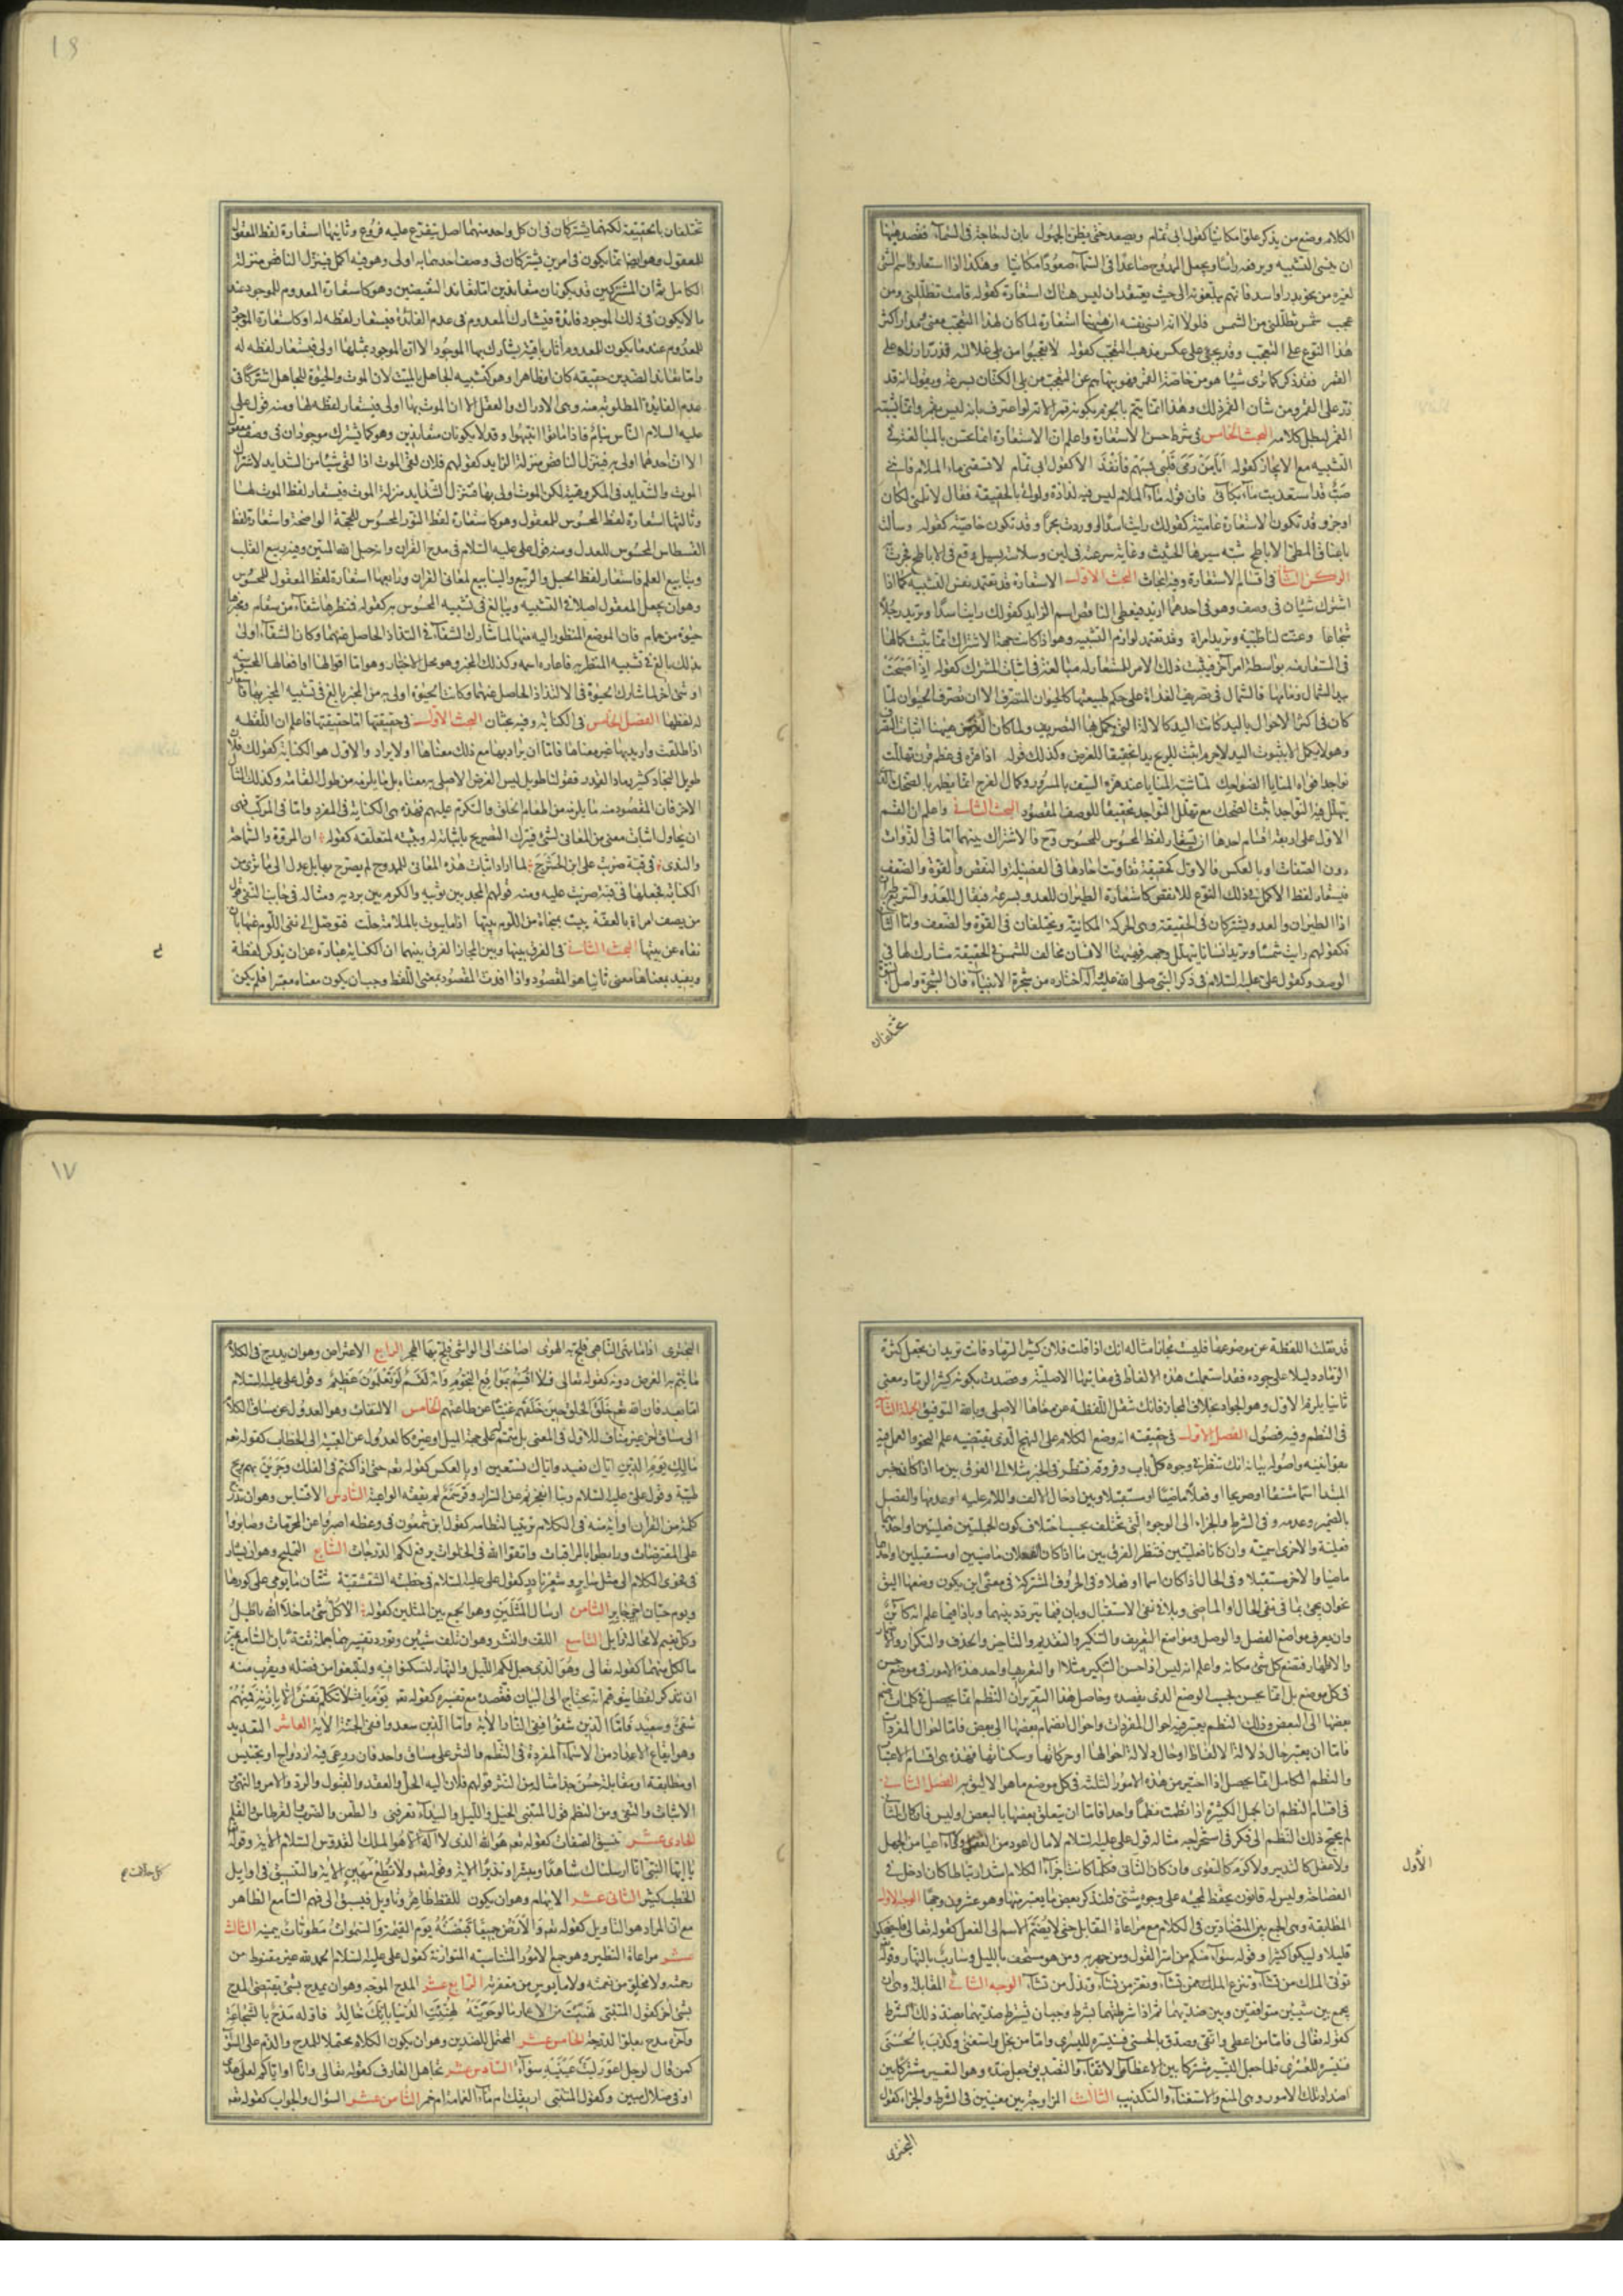 ١٦
الكلام وضع من يذكر علوا مكانيا كقول ابى تمام ويصعد حتى يظن الجهول بان له حاجة فى السماء فقصد ههنا
ان ينسى التشبيه ويرفعه راسا ويجعل الممدوح صاعدا فى السماء صعودا مكانيا وهكذا اذا استعاروا اسم الشئ
لغيره من نحو بدر او اسد فانهم يبلغون به الى حيث يعتقد ان ليس هناك استعارة كقوله قامت تظللنى ومن
عجب شمس تظللنى من الشمس فلولا انه انسى نفسه ان ههنا استعارة لما كان لهذا التعجب معنى ومدار اكثر
هذا النوع على التعجب وقد يجئ على عكس مذهب التعجب كقوله لا تعجبوا من بلى غلالته قد زر ازراره على
القمر فقد ذكر كما ترى شيئا هو من خاصة القمر فهو ينهاهم عن التعجب من بلى الكتان بسرعة ويقول انه قد
زر على القمر ومن شان القمر ذلك وهذا انما يتم بالجزم بكونه قمرا لانه لو اعترف بانه ليس بقمر وانما يشبه
القمر لبطل كلامه البحث الخامس فى شرط حسن الاستعارة واعلم ان الاستعارة انما تحسن بالمبالغة فى
التشبيه مع الايجاز كقوله ايا من رمى قلبى بسهم فانفذا لا كقول ابى تمام لا تسقنى ماء الملام فاننى
صب قد استعذبت ماء بكائى فان قوله ماء الملام ليس فيه لذاذة ولو اتى بالحقيقة فقال لا تلمنى لكان
اوجز وقد تكون الاستعارة عامية كقولك رايت اسدا او وردت بحرا وقد تكون خاصية كقوله وسالت
باعناق المطى الاباطح شبه سيرها الحثيث وغاية سرعته فى لين وسلاسة بسيل وقع فى الاباطح فجرت
الركن الثانى فى اقسام الاستعارة وفيه ابحاث البحث الاول الاستعارة قد تعتمد نفس التشبيه كما اذا
اشترك شيئان فى وصف وهو فى احدهما ازيد فيعطى الناقص اسم الزايد كقولك رايت اسدا وتريد رجلا
شجاعا وعنت لنا ظبية وتريد امراة وقد تعتمد لوازم التشبيه وهو اذا كانت جهة الاشتراك انما يثبت كمالها
فى المستعار منه بواسطة امر اخر فيثبت ذلك الامر للمستعار له مبالغة فى اثبات المشترك كقوله اذ اصبحت
بيد الشمال زمامها فالشمال فى تصريف الغداة على حكم طبيعتها كالحيوان المتصرف الا ان تصرف الحيوان لما
كان فى اكثر الاحوال باليد كانت اليد كالالة التى تكمل بها التصريف ولما كان الغرض ههنا اثبات التصرف
وهو لا يكمل الا بثبوت اليد لا جرم اثبت للريح يدا تحقيقا للغرض وكذلك قوله اذا هزه فى عظم قرن تهللت
نواجذ افواه المنايا الضواحك لما شبه المنايا عند هزه السيف بالمسرور وكمال الفرح انما يظهر بالضحك الذى
يتهلل فيه النواجذ اثبت الضحك مع تهلل النواجذ تحقيقا للوصف المقصود البحث الثانى واعلم ان القسم
الاول على اربعة اقسام احدها ان يستعار لفظ المحسوس للمحسوس وح فالاشتراك بينهما اما فى الذوات
دون الصفات او بالعكس فالاول كحقيقة تفاوتت احادها فى الفضيلة والنقص والقوة والضعف
فيستعار لفظ الاكمل فى ذلك النوع للانقص كاستعارة الطيران للعدو بسرعة فيقال للعدو السريع طيران
اذ الطيران والعدو يشتركان فى الحقيقة وهى الحركة المكانية ويختلفان فى القوة والضعف واما الثانى
فكقولهم رايت شمسا وتريد انسانا يتهلل وجهه فههنا الانسان مخالف للشمس فى الحقيقة مشارك لها فى
الوصف وكقول على عليه السلام فى ذكر النبى صلى الله عليه واله اختاره من شجرة الانبياء فان الشجرة واصل النبى
تختلفان
تختلفان بالحقيقة لكنهما يشتركان فى ان كل واحد منهما اصل يتفرع عليه فروع وثانيها استعارة لفظ المعقول
للمعقول وهو ايضا انما يكون فى امرين يشتركان فى وصف احدهما به اولى وهو فيه اكمل فينزل الناقص منزلة
الكامل ثم ان المشتركين قد يكونان متعاندين اما تعاند النقيضين وهو كاستعارة المعدوم للموجود عند
ما لا يكون فى ذلك الموجود فائدة فيشارك المعدوم فى عدم الفائدة فيستعار لفظه له او كاستعارة الموجود
للمعدوم عند ما يكون للمعدوم آثار باقية يشارك بها الموجود الا ان الموجود بمثلها اولى فيستعار لفظه له
واما تعاند الضدين حقيقة كان او ظاهرا وهو كتشبيه الجاهل بالميت لان الموت والحيوة للجاهل اشتركا فى
عدم الفايدة المطلوبة منه وهى الادراك والعقل الا ان الموت بها اولى فيستعار لفظه لها ومنه قول على
عليه السلام الناس نيام فاذا ماتوا انتبهوا وقد لا يكونان متعاندين وهو كما يشترك موجودان فى وصف معقول
الا ان احدهما اولى به فينزل الناقص منزلة الزايد كقولهم فلان لقى الموت اذا لقى شيئا من الشدايد لاشتراك
الموت والشدايد فى المكروهية لكن الموت اولى بها فتنزل الشدايد منزلة الموت فيستعار لفظ الموت لها
وثالثها استعارة لفظ المحسوس للمعقول وهو كاستعارة لفظ النور المحسوس للحجة الواضحة واستعارة لفظ
القسطاس المحسوس للعدل ومنه قول على عليه السلام فى مدح القران وانه حبل الله المتين وفيه ربيع القلب
وينابيع العلم فاستعار لفظ الحبل والربيع والينابيع لمعانى القران ورابعها استعارة لفظ المعقول للمحسوس
وهو ان يجعل المعقول اصلا فى التشبيه ويبالغ فى تشبيه المحسوس به كقوله فنظرها شفاء من سقام ومخبرها
حيوة من حمام فان الموضع المنظور اليه منها لما شارك الشفاء فى التذاذ الحاصل عنهما وكان الشفاء اولى
بذلك بالغ فى تشبيه المنظر به فاعاره اسمه وكذلك المخبر وهو محل الاختبار وهو اما اقوالها او افعالها الحسنة
او شئ اخر لما شارك الحيوة فى الالتذاذ الحاصل عنهما وكانت الحيوة اولى به من المخبر بالغ فى تشبيه المخبر بها فاستعار
له لفظها الفصل الخامس فى الكناية وفيه بحثان البحث الاول فى حقيقتها اما حقيقتها فاعلم ان اللفظة
اذا اطلقت واريد بها غير معناها فاما ان يراد بها مع ذلك معناها اولا يراد والاول هو الكناية كقولك فلان
طويل النجاد كثير رماد القدر فقولنا طويل ليس الغرض الاصلى به معناه بل ما يلزمه من طول القامة وكذلك المثال
الاخر فان المقصود منه ما يلزمه من اطعام الخلق والتكرم عليهم فهذه هى الكناية فى المفرد واما فى المركب فهى
ان يحاول اثبات معنى من المعانى لشئ فيترك التصريح باثباته له ويثبته لمتعلقه كقوله ان المروة والسماحة
والندى فى قبة ضربت على ابن الحشرج لما اراد اثبات هذه المعانى للممدوح لم يصرح بها بل عدل الى ما ترى من
الكناية فجعلها فى قبة ضربت عليه ومنه قولهم المجد بين ثوبيه والكرم بين برديه ومثاله فى جانب النفى قول
من يصف امراة بالعفة يبيت بمنجاة من اللوم بيتها اذا ما بيوت بالملامة حلت فتوصل الى نفى اللوم عنها بان
نفاه عن بيتها البحث الثانى فى الفرق بينها وبين المجاز الفرق بينهما ان الكناية عبارة عن ان يذكر لفظة
ويفيد بمعناها معنى ثانيا هو المقصود واذا افدت المقصود بمعنى اللفظ وجب ان يكون معناه معتبرا فلم يكن
١٧
قد نقلت اللفظة عن موضوعها فليست مجازا مثاله انك اذا قلت فلان كثير الرماد فانت تريد ان تجعل كثرة
الرماد دليلا على جوده فقد استعملت هذه الالفاظ فى معانيها الاصلية وقصدت بكونه كثير الرماد معنى
ثانيا يلزم الاول وهو الجواد بخلاف المجاز فانك تنقل اللفظة عن معناها الاصلى وبالله التوفيق الجملة الثانية
فى النظم وفيه فصول الفصل الاول فى حقيقته انه وضع الكلام على النهج الذى يقتضيه علم النحو والعمل فيه
بقوانينه واصوله بيانه انك تنظر فى وجوه كل باب وفروقه فتنظر فى الخبر مثلا الى الفرق بين ما اذا كان خبر
المبتدا اسما مشتقا او صريحا او فعلا ماضيا او مستقبلا وبين ادخال الالف واللام عليه او عدمها والفصل
بالضمير وعدمه وفى الشرط والجزاء الى الوجوه التى تختلف بحسب اختلاف كون الجملتين فعليتين او احدهما
فعلية والاخرى اسمية وان كانتا فعليتين فتنظر الفرق بين ما اذا كان الفعلان ماضيين او مستقبلين او احدهما
ماضيا والاخر مستقبلا وفى الحال اذا كان اسما او فعلا وفى الحروف المشتركة فى معنى اين يكون وضعها اليق
نحو ان يجئ بما فى نفى الحال او الماضى وبلا فى نفى الاستقبال وبان فيما يتردد بينهما وباذا فيما علم انه كائن
وان يعرف مواضع الفصل والوصل ومواضع التعريف والتنكير والتقديم والتاخير والحذف والتكرار والاضمار
والاظهار فتضع كل شئ مكانه واعلم انه ليس اذا حسن التنكير مثلا او التعريف او احد هذه الامور فى موضع حسن
فى كل موضع بل انما يحسن بحسب الوضع الذى يقصده وحاصل هذا التقرير ان النظم انما يحصل فى كلمات ضم
بعضها الى البعض وذلك النظم يعتبر فيه احوال المفردات واحوال انضمام بعضها الى بعض فاما احوال المفردات
فاما ان يعتبر حال دلالة الالفاظ او حال دلالة احوالها او حركاتها وسكناتها فهذه هى اقسام الاعتبار
والنظم الكامل انما يحصل اذا اختير من هذه الامور الثلثة فى كل موضع ما هو الاليق به الفصل الثانى
فى اقسام النظم ان الجمل الكثيرة اذا نظمت نظما واحدا فاما ان يتعلق بعضها بالبعض او ليس فان كان الثانى
لم يحتج ذلك النظم الى فكر فى استخراجه مثاله قول على عليه السلام لا مال اعود من العقل ولا داء اعيا من الجهل
ولا عقل كالتدبير ولا كرم كالتقوى وان كان الثانى فكلما كانت اجزاء الكلام اشد ارتباطا كان ادخل فى
الأول
الفصاحة وليس له قانون يحفظ لمجيئه على وجوه شتى فلنذكر بعض ما يعتبر منها وهو عشرون وجها الوجه الاول
المطابقة وهى الجمع بين المتضادين فى الكلام مع مراعاة التقابل حتى لا يضم الاسم الى الفعل كقوله تعالى فليضحكوا
قليلا وليبكوا كثيرا وقوله سواء منكم من اسر القول ومن جهر به ومن هو مستخف بالليل وسارب بالنهار وقوله
توتى الملك من تشاء وتنزع الملك ممن تشاء وتعز من تشاء وتذل من تشاء الوجه الثانى المقابلة وهى ان
يجمع بين شيئين متوافقين وبين ضديهما ثم اذا شرطتهما بشرط وجب ان تشترط ضديهما بضد ذلك الشرط
كقوله تعالى فاما من اعطى واتقى وصدق بالحسنى فسنيسره لليسرى واما من بخل واستغنى وكذب بالحسنى
فسنيسره للعسرى فلما جعل التيسير مشتركا بين الاعطاء والاتقاء والتصديق جعل ضده وهو التعسير مشتركا بين
اضداد تلك الامور وهى المنع والاستغناء والتكذيب الثالث المزاوجة بين معنيين فى الشرط والجزاء كقول
البحترى
البحترى اذا ما نهى الناهى فلج به الهوى اصاخت الى الواشى فلج بها الهجر الرابع الاعتراض وهو ان يدرج فى الكلام
ما يتم به الغرض دونه كقوله تعالى فلا اقسم بمواقع النجوم وانه لقسم لو تعلمون عظيم وقول على عليه السلام
اما بعد فان الله سبحانه خلق الخلق حين خلقهم غنيا عن طاعتهم الخامس الالتفات وهو العدول عن مساق الكلام
الى مساق اخر غير مناف للاول فى المعنى بل متمم له على جهة المثل او غيره كالعدول عن الغيبة الى الخطاب كقوله تعه
مالك يوم الدين اياك نعبد واياك نستعين او بالعكس كقوله تعه حتى اذا كنتم فى الفلك وجرين بهم بريح
طيبة وقول على عليه السلام وبنا انفجرتم عن السرار وقر سمع لم يفقه الواعية السادس الاقتباس وهو ان تدرج
كلمة من القران او اية منه فى الكلام تزيينا لنظامه كقول ابن شمعون فى وعظه اصبروا عن المحرمات وصابروا
على المفترضات ورابطوا بالمراقبات واتقوا الله فى الخلوات يرفع لكم الدرجات السابع التمليح وهو ان يشار
فى فحوى الكلام الى مثل سائر وشعر نادر كقول على عليه السلام فى خطبته الشقشقية شتان ما يومى على كورها
ويوم حيان اخى جابر الثامن ارسال المثلين وهو الجمع بين المثلين كقوله الا كل شئ ما خلا الله باطل
وكل نعيم لا محالة زايل التاسع اللف والنشر وهو ان تلف شيئين وتورد تفسيرهما جملة ثقة بان السامع يميز
ما لكل منهما كقوله تعالى وهو الذى جعل لكم الليل والنهار لتسكنوا فيه ولتبتغوا من فضله ويقرب منه
ان تذكر لفظا يتوهم انه يحتاج الى البيان فتقصده مع تفسيره كقوله تعه يوم يات لا تكلم نفس الا باذنه فمنهم
شقى وسعيد فاما الذين شقوا ففى النار الاية واما الذين سعدوا ففى الجنة الاية العاشر التعديد
وهو ايقاع الاعداد من الاسماء المفردة فى النظم والنثر على مساق واحد فان روعى فيه ازدواج او تجنيس
او مطابقة او مقابلة حسن جدا مثاله من النثر قولهم فلان اليه الحل والعقد والقبول والرد والامر والنهى
الاثبات والنفى ومن النظم قول المتنبى الخيل والليل والبيداء تعرفنى والطعن والضرب القرطاس القلم
الحادى عشر تنسيق الصفات كقوله تعه هو الله الذى لا اله الا هو الملك القدوس السلام الاية وقوله
يا ايها النبى انا ارسلناك شاهدا ومبشرا ونذيرا الاية وقوله تعه ولا تطع كل حلاف مهين الاية والتنسيق فى اوايل
كل حلاف صح
الخطب كثير الثانى عشر الايهام وهو ان يكون للفظ ظاهر وتاويل فيسبق الى فهم السامع الظاهر
مع ان المراد هو التاويل كقوله تعه والارض جميعا قبضته يوم القيمة والسموات مطويات بيمينه الثالث
عشر مراعاة النظير وهو جمع الامور المتناسبة المتوازنة كقول على عليه السلام الحمد لله غير مقنوط من
رحمته ولا مخلو من نعمته ولا مايوس من مغفرته الرابع عشر المدح الموجه وهو ان يمدح بشئ يقتضى المدح
بشئ اخر كقول المتنبى نهبت من الاعمار ما لو حويته لهنئت الدنيا بانك خالد فاوله مدح بالشجاعة
واخره مدح بعلو الدرجة الخامس عشر المحتمل للضدين وهو ان يكون الكلام محتملا للمدح والذم على السواء
كمن قال لرجل اعور ليت عينيه سواء السادس عشر تجاهل العارف كقوله تعالى وانا او اياكم لعلى هدى
او فى ضلال مبين وكقول المتنبى اريقك ام ماء الغمامة ام خمر الثامن عشر السؤال والجواب كقوله تعه